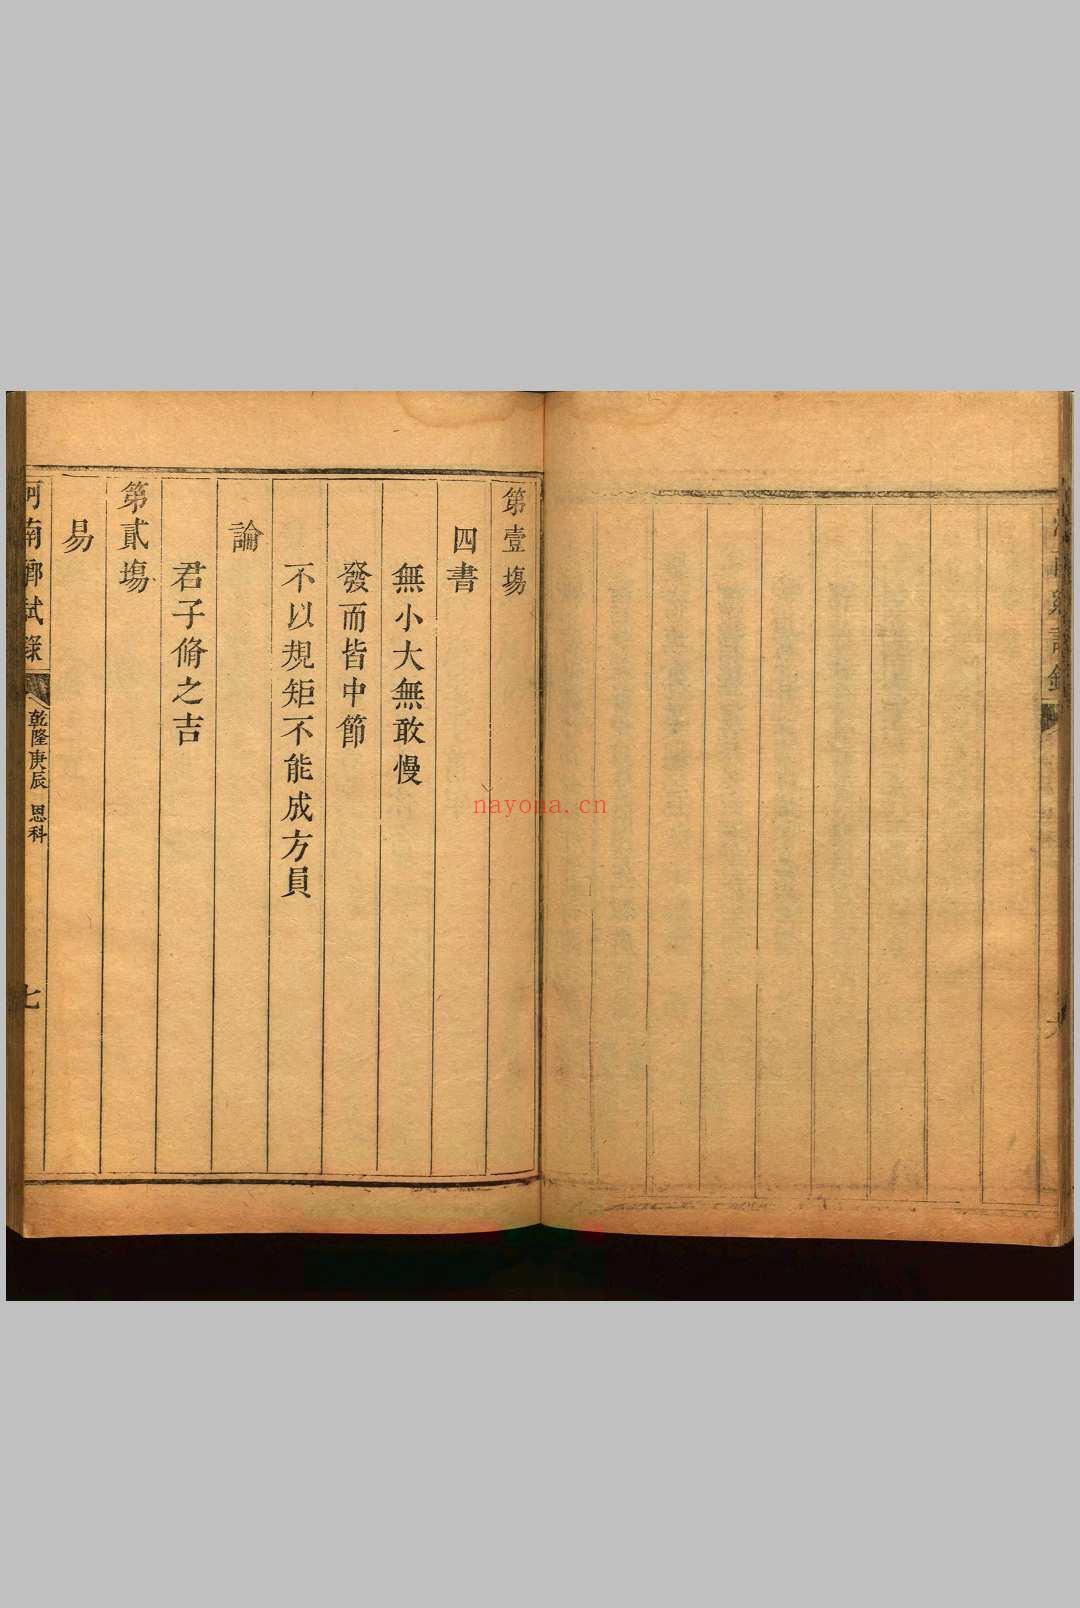 第壹塲
四書
無小大無敢慢
發而皆中節
不以規矩不能成方員
論
君子脩之吉
第貳塲
易
河南鄉試錄
乾隆庚辰 恩科
七
nayona.cn